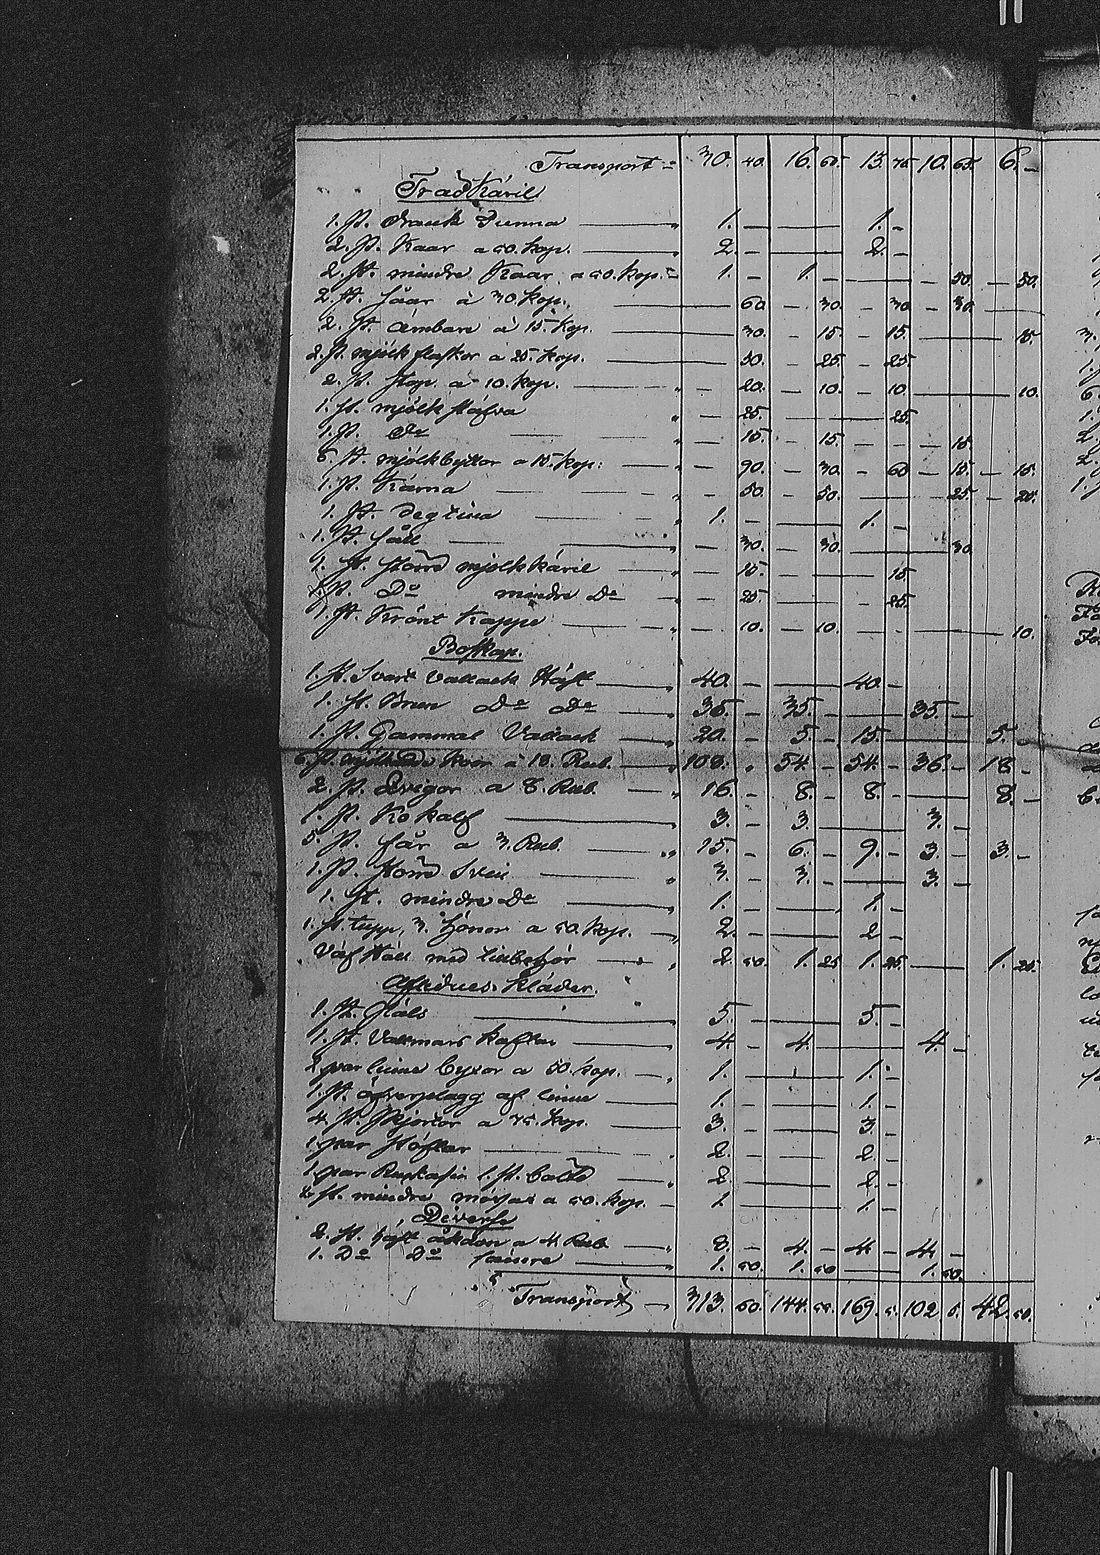 Transport 30. 40. 16. 65. 13. 75. 10. 65. 6. –
Trädkäril
1. st. Brank Tunna — 1. — 1. –
2. st. Kaar a 50. kop. — 2. — 2. –
2. st. mindre Kaar a 50. kop. — 1. – 1. — 50. — 50.
2. st. såar à 30. kop. — 60. – 30. – 30. – 30.
2. st. ämbare à 15. kop. — 30. – 15. – 15. — 15.
2. st. mjölkflaskor a 25. kop. — 50. – 25. – 25.
2. st. stop a 10. kop. — 20. – 10. – 10. — 10.
1. st. mjölk stäfva — 25. — 25.
1. st. Do — 15. – 15. — 15.
6 st. mjölkbyttor a 15. kop: — 90. – 30. – 60. – 15. – 15.
1. st. Kärna — 50. – 50. — 25 – 25.
1. st. degtina — 1. — 1. –
1. st. såll — 30. – 30. — 30.
1. st. större mjölkkäril — 15. — 15
st. Do mindre Do — 25. — 25.
1. st. Krönt Kappe — 10. – 10. — 10.
Boskap.
1. st. Svart Vallack Häst — 40. — 40. –
1. st. Brun Do Do — 35. – 35. — 35. –
1. st. Gammal Vallack — 20. – 5. – 15. — 5. –
6. st. mjölkande kor à 18. Rub. — 108. „ 54. – 54. – 36. – 18 –
2. st. Qvigor a 8. Rub. — 16. – 8. – 8. — 8. –
1. st. Ko kalf — 3. – 3. — 3. –
5. st. får a 3. Rub. — 15. – 6. – 9. – 3. – 3. –
1. st. större Svin — 3. – 3. — 3. –
1. st. mindre Do — 1. — 1. –
1. st. tupp, 3. hönor a 50. kop. — 2. — 2. –
Väfstall med tillbehör — 2. 50. 1. 25 1. 25. — 1. 25.
Aflidnes kläder.
1. st. Päls — 5. — 5. –
1. st. Vallmars kaftan — 4. – 4. — 4. –
2 par linne byxor a 50. kop. — 1. — 1. –
1. st. öfverplagg af linne — 1. — 1. –
4. st. skjortor a 75. kop. — 3. — 3. –
1. par stöflar — 2. — 2. –
1. par 1. st. bälte — 2. — 2. –
2 st. mindre a 50. kop. – 1. — 1. –
Diverse
2. st. häst åkdon a 4. Rub — 8. – 4. – 4. – 4. –
1. Do Do sämre — 1. 50. 1. 50 — 1. 50.
Transport — 313. 50. 144. 169. 102. 42. 50.